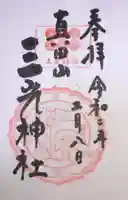 奉拝
令和二年
二月八日
真田山
三光神社